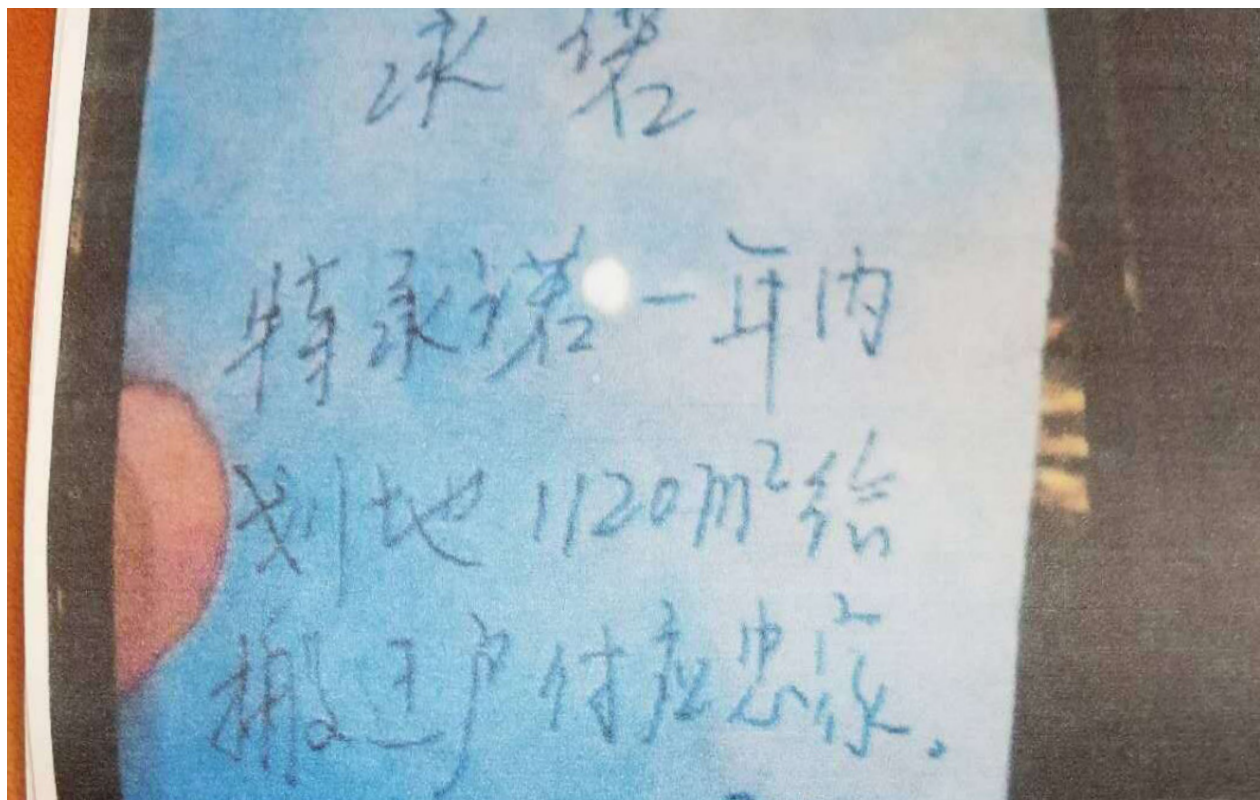 承诺
特承诺一年内
划地1120m²给
搬迁户付应忠家。